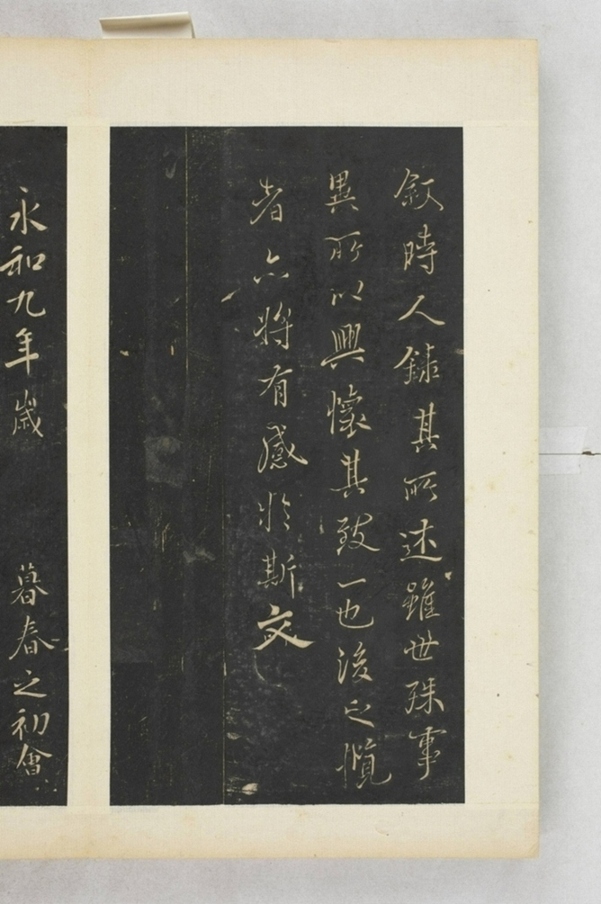 敘時人錄其所述雖世殊事
異所以興懷其致一也後之攬
者亦將有感於斯文
永和九年歲暮春之初會